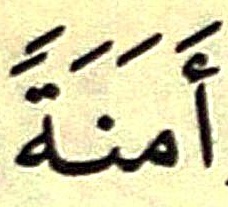 أَمَنَةً